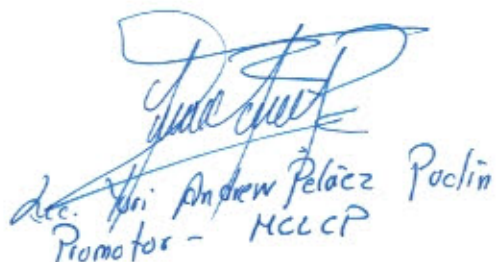 Lic. Yuri Andrew Peláez Puclín
Promotor - MCLCP